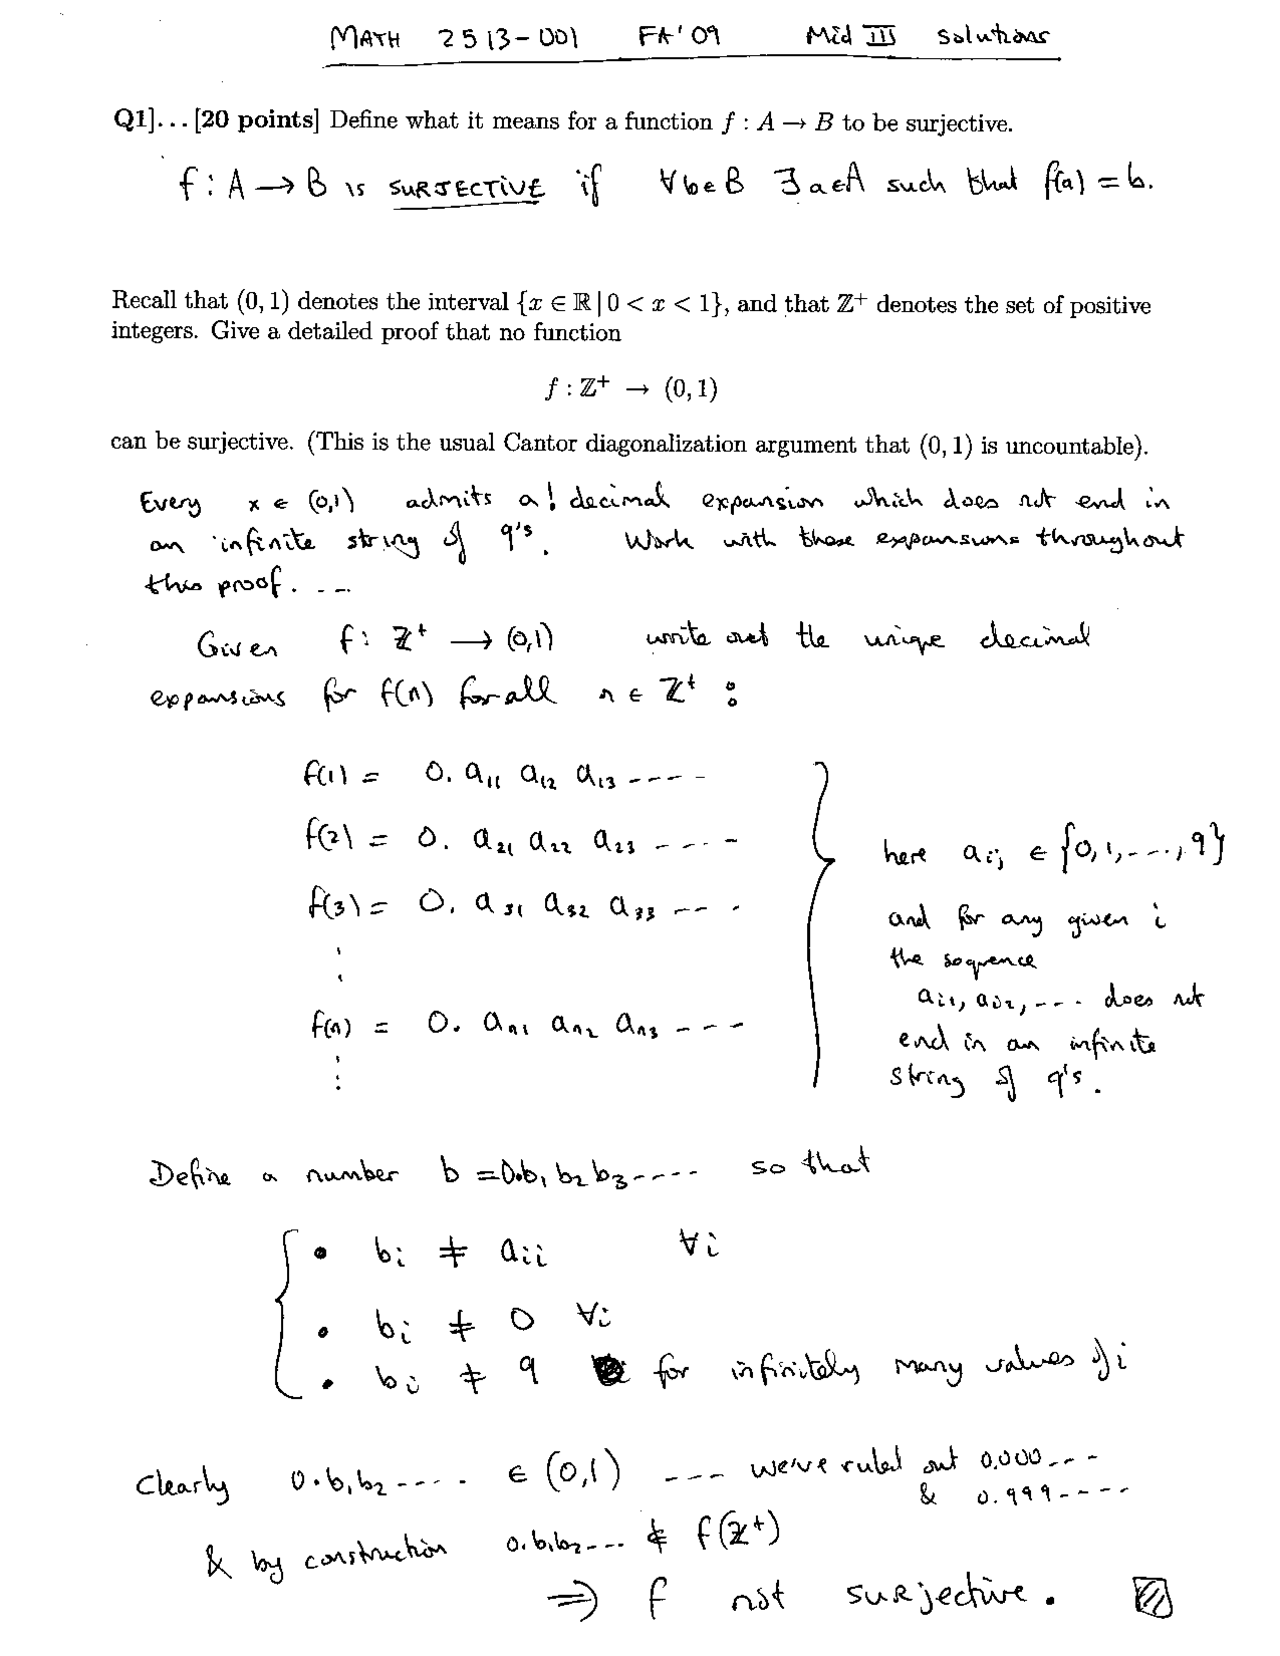 MATH 2513-001 FA'09 Mid III Solutions
Q1]... [20 points] Define what it means for a function f : A → B to be surjective.
f : A → B is SURJECTIVE if ∀b∈B ∃a∈A such that f(a) = b.
Recall that (0, 1) denotes the interval {x ∈ ℝ | 0 < x < 1}, and that ℤ⁺ denotes the set of positive
integers. Give a detailed proof that no function
f : ℤ⁺ → (0, 1)
can be surjective. (This is the usual Cantor diagonalization argument that (0, 1) is uncountable).
Every x ∈ (0,1) admits a ! decimal expansion which does not end in
an infinite string of 9's. Work with these expansions throughout
this proof. ...
Given f : ℤ⁺ → (0,1) write out the unique decimal
expansions for f(n) for all n ∈ ℤ⁺ :
f(1) = 0. a₁₁ a₁₂ a₁₃ ----
f(2) = 0. a₂₁ a₂₂ a₂₃ ----
f(3) = 0. a₃₁ a₃₂ a₃₃ ---
⋮
f(n) = 0. aₙ₁ aₙ₂ aₙ₃ ---
⋮
here aᵢⱼ ∈ {0,1,...,9}
and for any given i
the sequence
aᵢ₁, aᵢ₂, ---- does not
end in an infinite
string of 9's.
Define a number b = 0.b₁ b₂ b₃ ---- so that
• bᵢ ≠ aᵢᵢ ∀i
• bᵢ ≠ 0 ∀i
• bᵢ ≠ 9 for infinitely many values of i
Clearly 0.b₁b₂ ---- ∈ (0,1) --- we've ruled out 0.000---
& 0.999----
& by construction 0.b₁b₂--- ∉ f(ℤ⁺)
⇒ f not surjective.